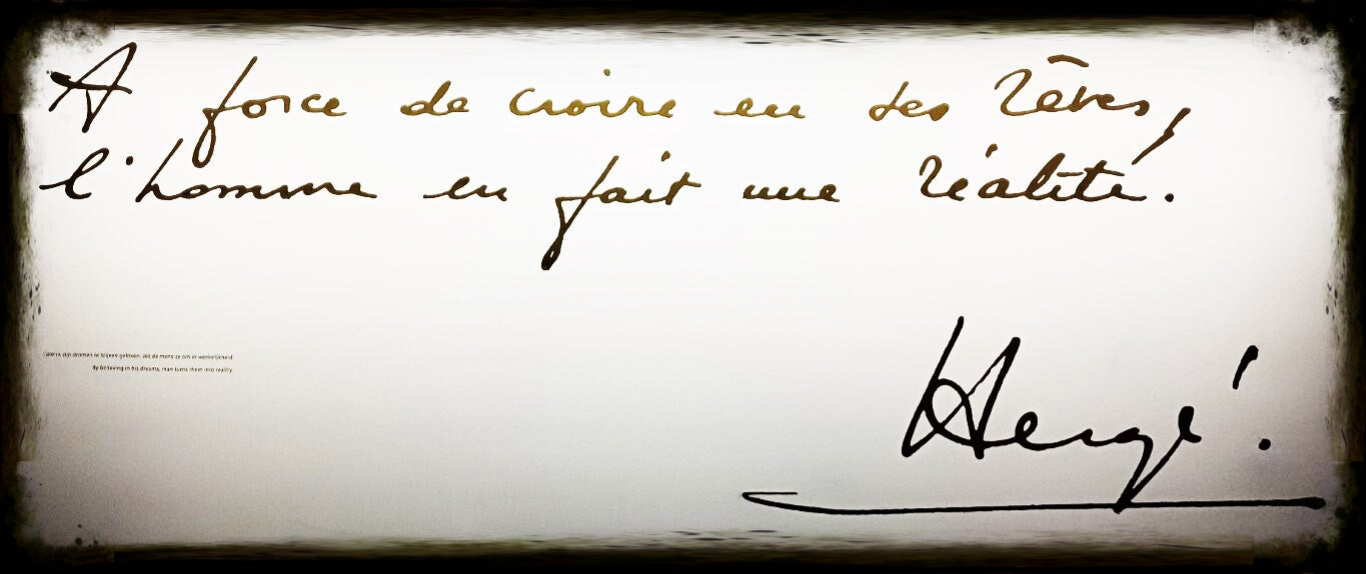 A force de croire en ses rêves,
l'homme en fait une réalité.
door in zijn dromen te blijven geloven, zet de mens ze om in werkelijkheid
By believing in his dreams, man turns them into reality.
Hergé.